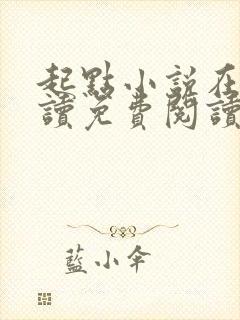 起點小說在
讀免費閱讀
藍小傘